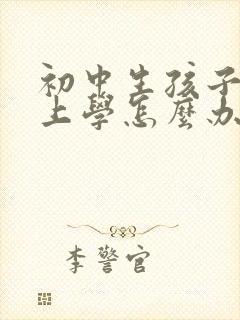 初中生孩子
上學怎麼办
李警官